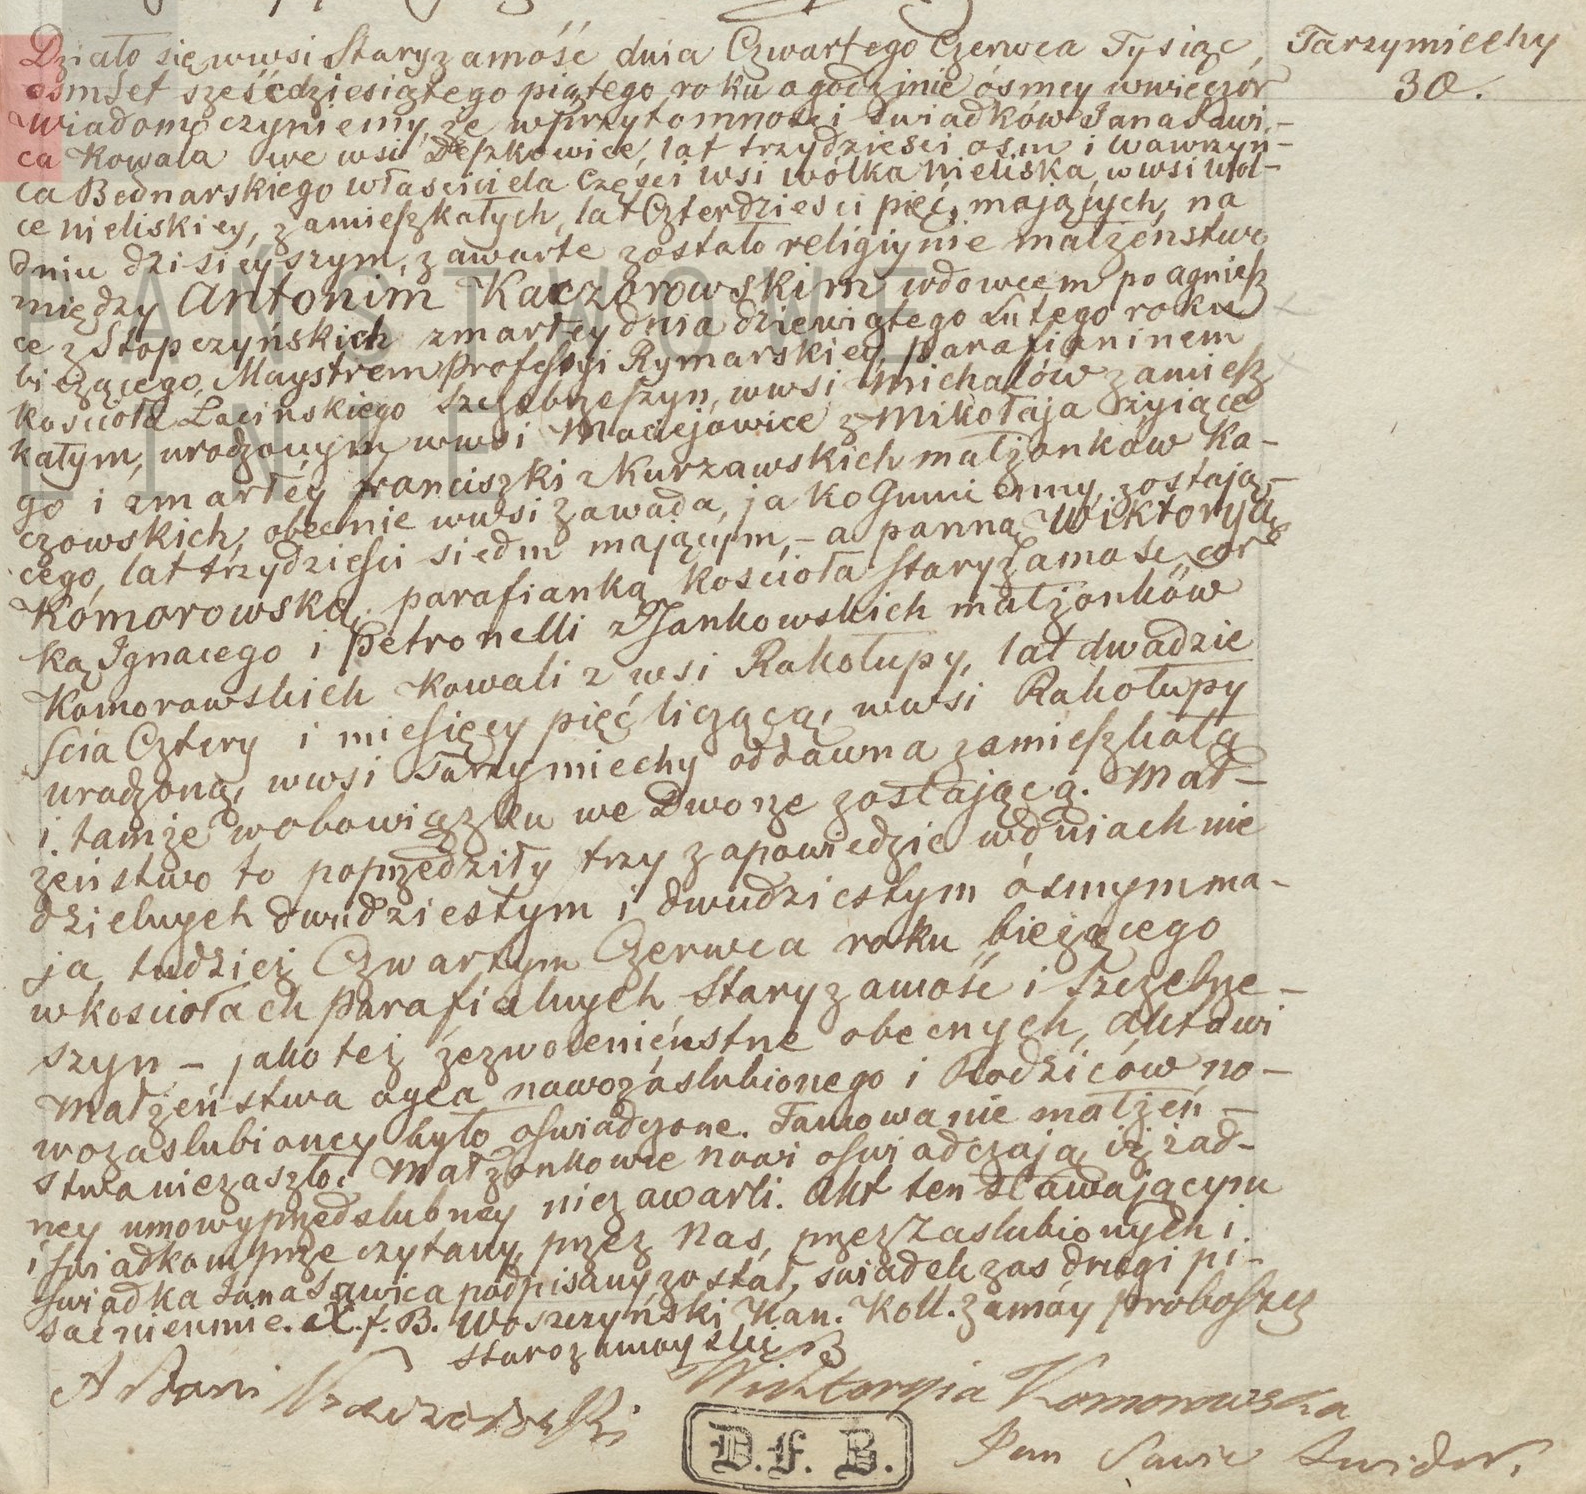 Działo się wwsi Staryzamość dnia Czwartego Czerwca Tysiąc
Tarzymiechy
30.
osmset sześćdziesiątego piątego roku ogodzinie ósmey wwieczór
Wiadomo czyniemy, że wprzytomności Swiadków Jana Sawi-
ca Kowala we wsi Deszkowice, lat trzydzieści osm i Wawrzyń-
ca Bednarskiego właściciela Części wsi wólka Nieliska, wwsi Wól-
ce nieliskiey, zamieszkałych, lat Czterdzieści pięć, mających, na
dniu dzisieyszym, zawarte zostało religiynie małżeństwo
między Antonim Kaczorowskim wdowcem po agniesz
ce z Stopczyńskich zmarłey dnia dziewiątego Lutego roku
bieżącego, Maystrem Professyi Rymarskiey, parafianinem
kościoła Łacińskiego Szczebrzeszyn, wwsi Michalów zamiesz
kałym, urodzonym wwsi Maciejowice z Mikołaja żyiące
go i zmarłéy franciszki z Kurzawskich małżonków Ka-
czowskich, obecnie wwsi Zawada, jako Gumienny, zostają-
cego, lat trzydzieści siedm mającym, - a panną Wiktoryą
Komorowską, parafianką kościoła Staryzamość, cor
ką Ignacego i Petronelli z Jankowskich małżonków
Komorowskich Kowali z wsi Rakołupy, lat dwadzie
ścia Cztery i miesięcy pięć liczącą, wwsi Rakołupy
urodzoną, wwsi Tarzymiechy oddawna zamieszkałą
i tamże wobowiązku we Dworze zostającą. Mał-
żeństwo to poprzedziły trzy zapowiedzie wdniach nie
dzielnych dwudziestym i dwudziestym ósmym ma-
ja, tudzież Czwartym Czerwca roku bieżącego
wkościołach parafialnych, Staryzamość i Szczebrze-
szyn - jako też zezwolenie ustne obecnych, aktowi
Małżeństwa oyca nowozaslubionego i Rodziców no-
wozaslubioney było oświadczone. Tamowanie małżeń-
stwa niezaszło. Małżonkowie nowi oświadczają iż żad-
ney umowy przedslubney niezawarli. Akt ten stawającym
i świadkom przeczytany, przez Nas, przez Zaslubionych i
świadka Jana Sawica podpisany został, swiadek zas drugi pi-
sać nieumie. X. f. B. Woszczyński Kan. Koll. Zamoy proboszcz
Starozamoyski
Antoni Kaczorowski
Wiktoryia Komorowska
Jan Sawic Swiadek
D. F. B.